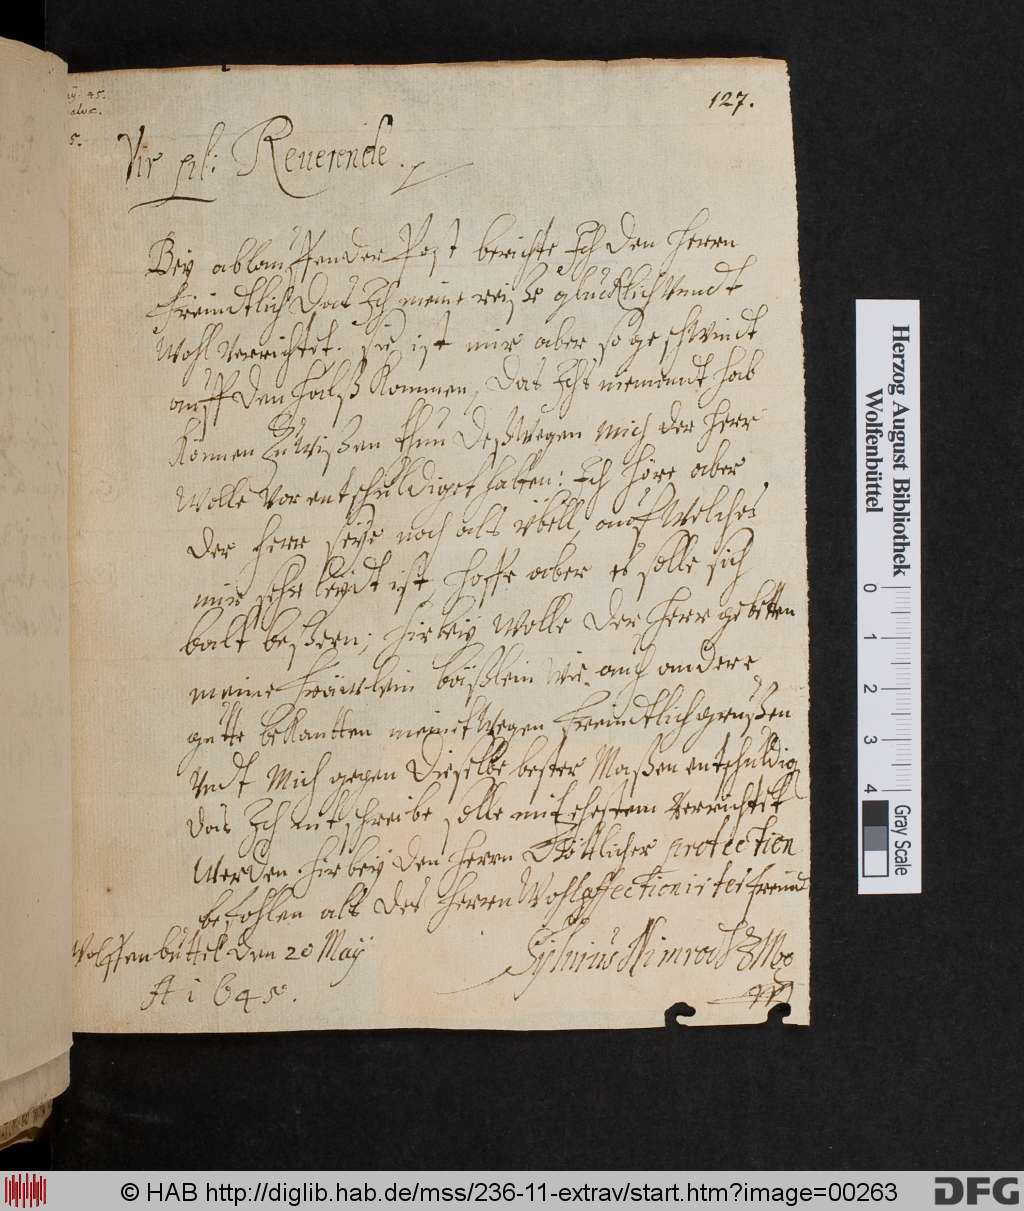 127.
Vir pl: Reuerende.
Bey ablauffender Post berichte Ich den Herrn
freündtlich das Ich meine reiße glücklich vndt
wohl verrichtet. sie ist mir aber so geschwindt
auff den halß kommen, das Ichs niemandt hab
können zu wißen thun deßwegen mich der Herr
wolle vor entschuldiget halten: Ich höre aber
der Herr seye noch als vbell auff welches
mir sehr leydt ist, hoffe aber es solle sich
balt beßern; hirbey wolle der Herr gebetten
meine fräwlein bäßlein wie auch andere
gutte bekantten meinetwegen freündtlich grußen
vndt mich gegen dieselbe bester maßen entschuldig
das Ich nit schreibe solle mit ehestem verrichtet
werden. hirbey den Herrn Göttlicher protection
befohlen alß des Herrn Wohlaffectionirter freund
Wolffenbüttel den 20 May
A 1645.
Sylvius Nimrod HZW
Herzog August Bibliothek
Wolfenbüttel
0 1 2 3 4
Gray Scale
© HAB http://diglib.hab.de/mss/236-11-extrav/start.htm?image=00263
DFG